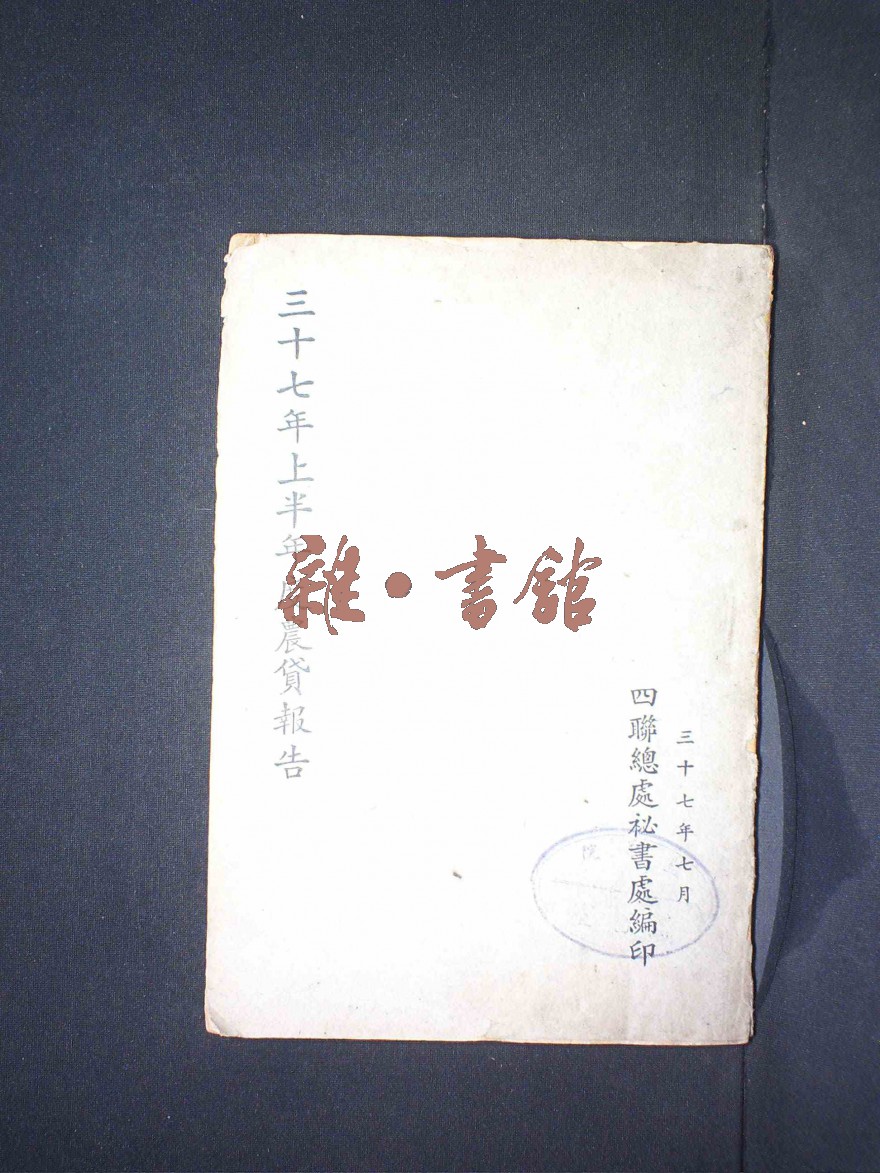 三十七年七月
四聯總處祕書處編印
三十七年上半年度農貸報告
雜·書館
院